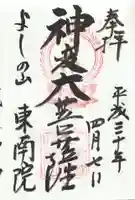 奉拝
平成三十年
四月七日
神変大菩薩
よしの山
東南院